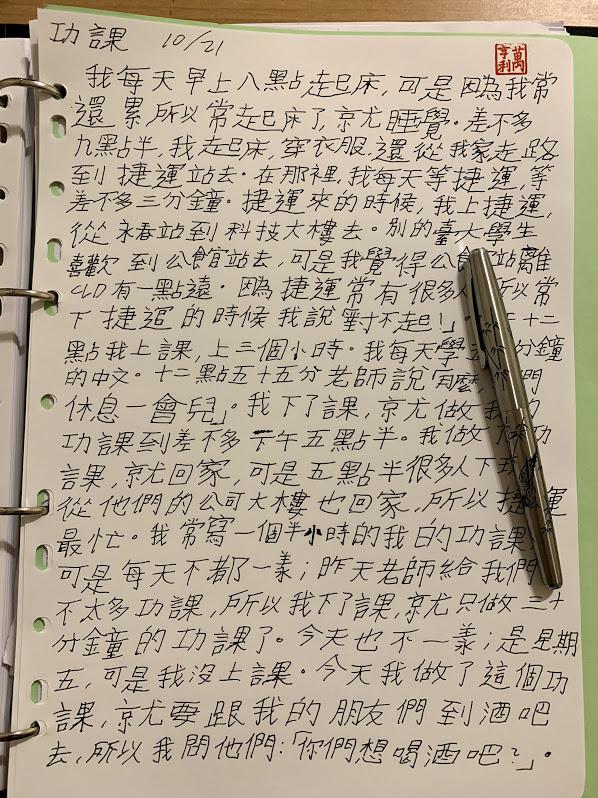 功課 10/21
萬亨利
我每天早上八點起床,可是因為我常
還累所以常起床了就睡覺。差不多
九點半,我起床,穿衣服,還從我家走路
到捷運站去。在那裡,我每天等捷運,等
差不多三分鐘。捷運來的時候,我上捷運,
從永春站到科技大樓去。別的臺大學生
喜歡到公館站去,可是我覺得公館站離
CLD有一點遠。因為捷運常有很多人所以常
下捷運的時候我說「對不起!」。十二
點我上課,上三個小時。我每天學分鐘
的中文。十二點五十五分老師說「麼們
休息一會兒」。我下了課,就做我
功課到差不多下午五點半。我做了功
課,就回家,可是五點半很多人下
從他們的公司大樓也回家,所以捷運
最忙。我常寫一個半小時的我的功課,
可是每天不都一樣;昨天老師給我們
不太多功課,所以我下了課,就只做三十
分鐘的功課了。今天也不一樣;是星期
五,可是我沒上課。今天我做了這個功
課,就要跟我的朋友們到酒吧
去,所以我問他們:「你們想喝酒吧?」。